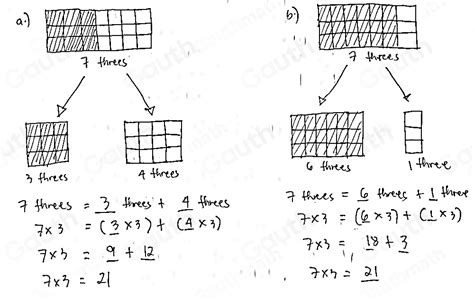 a.)
7 threes
3 threes
4 threes
7 threes = 3 threes + 4 threes
7x3 = (3x3) + (4x3)
7x3 = 9 + 12
7x3 = 21
b.)
7 threes
6 threes
1 three
7 threes = 6 threes + 1 three
7x3 = (6x3) + (1x3)
7x3 = 18 + 3
7x3 = 21